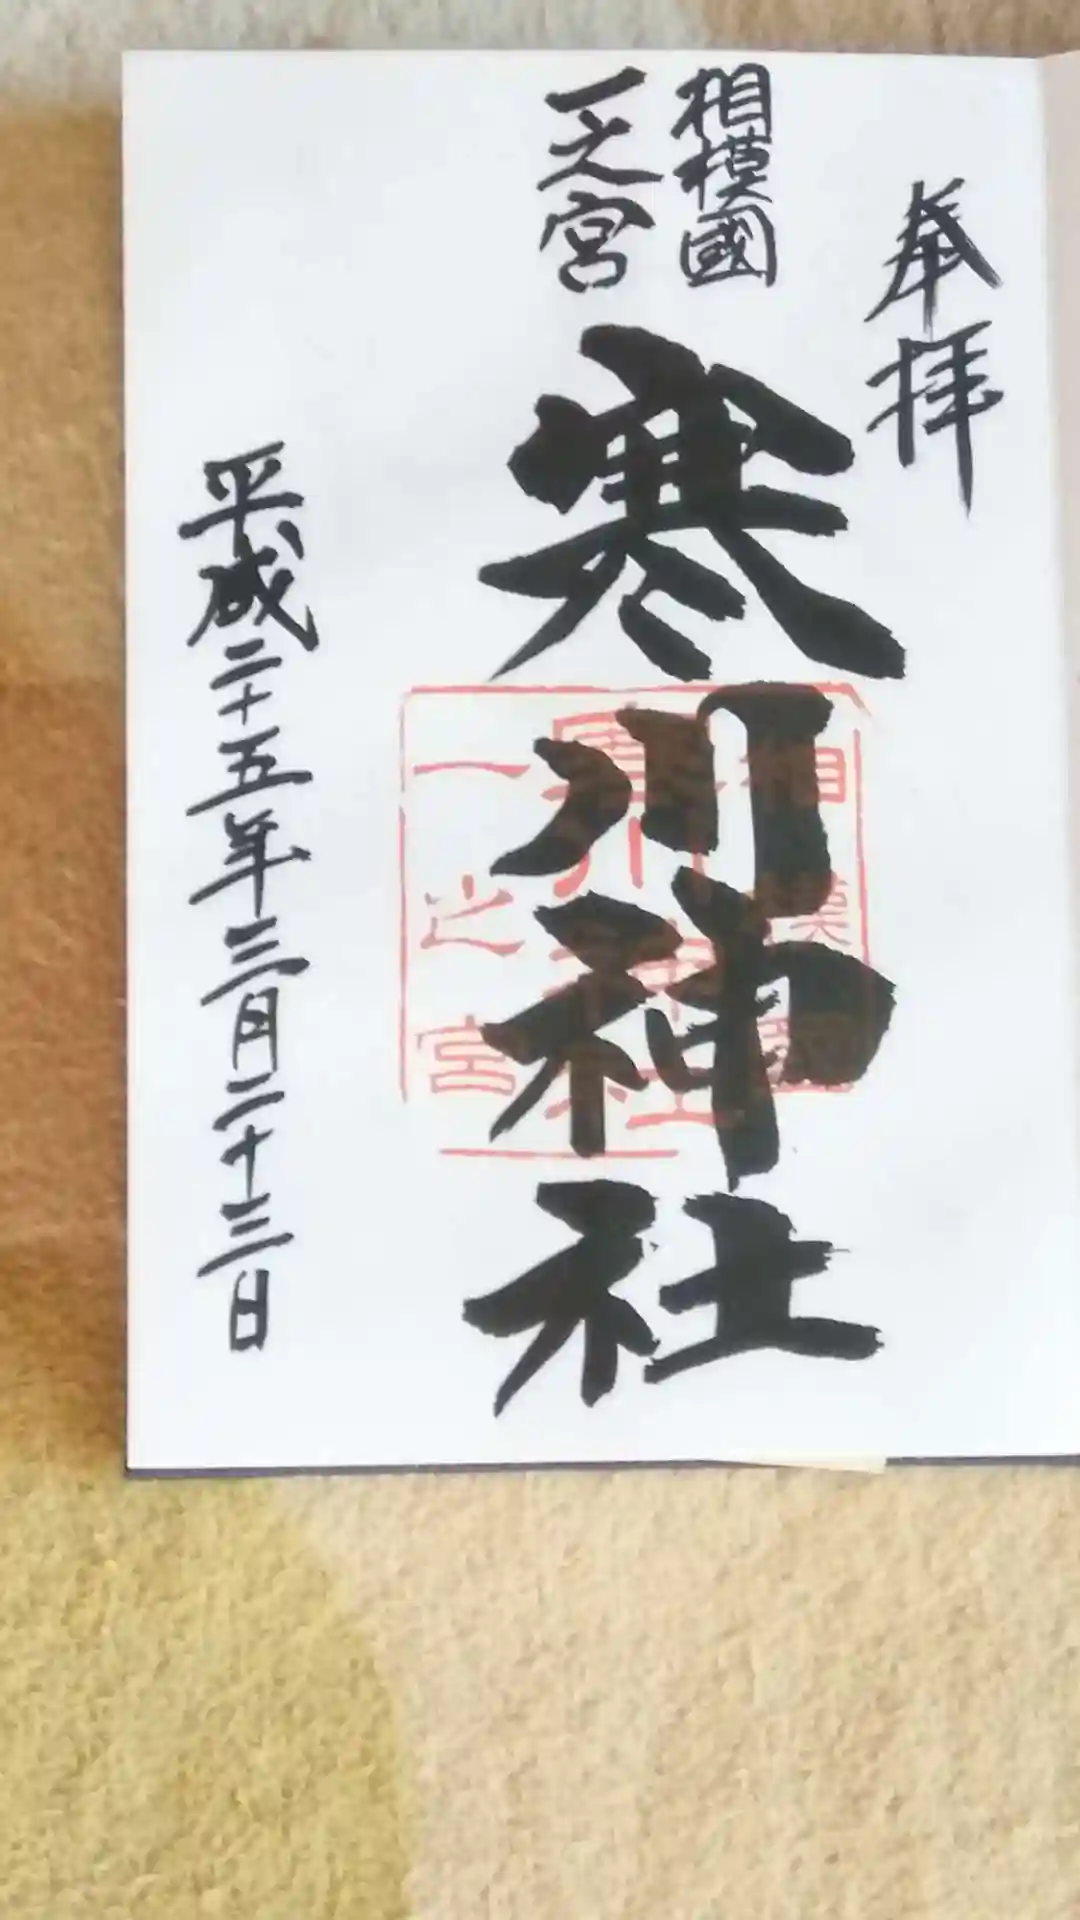 奉拝
相模國
一之宮
寒川神社
相模國
寒川神社
一之宮
平成二十五年三月二十三日